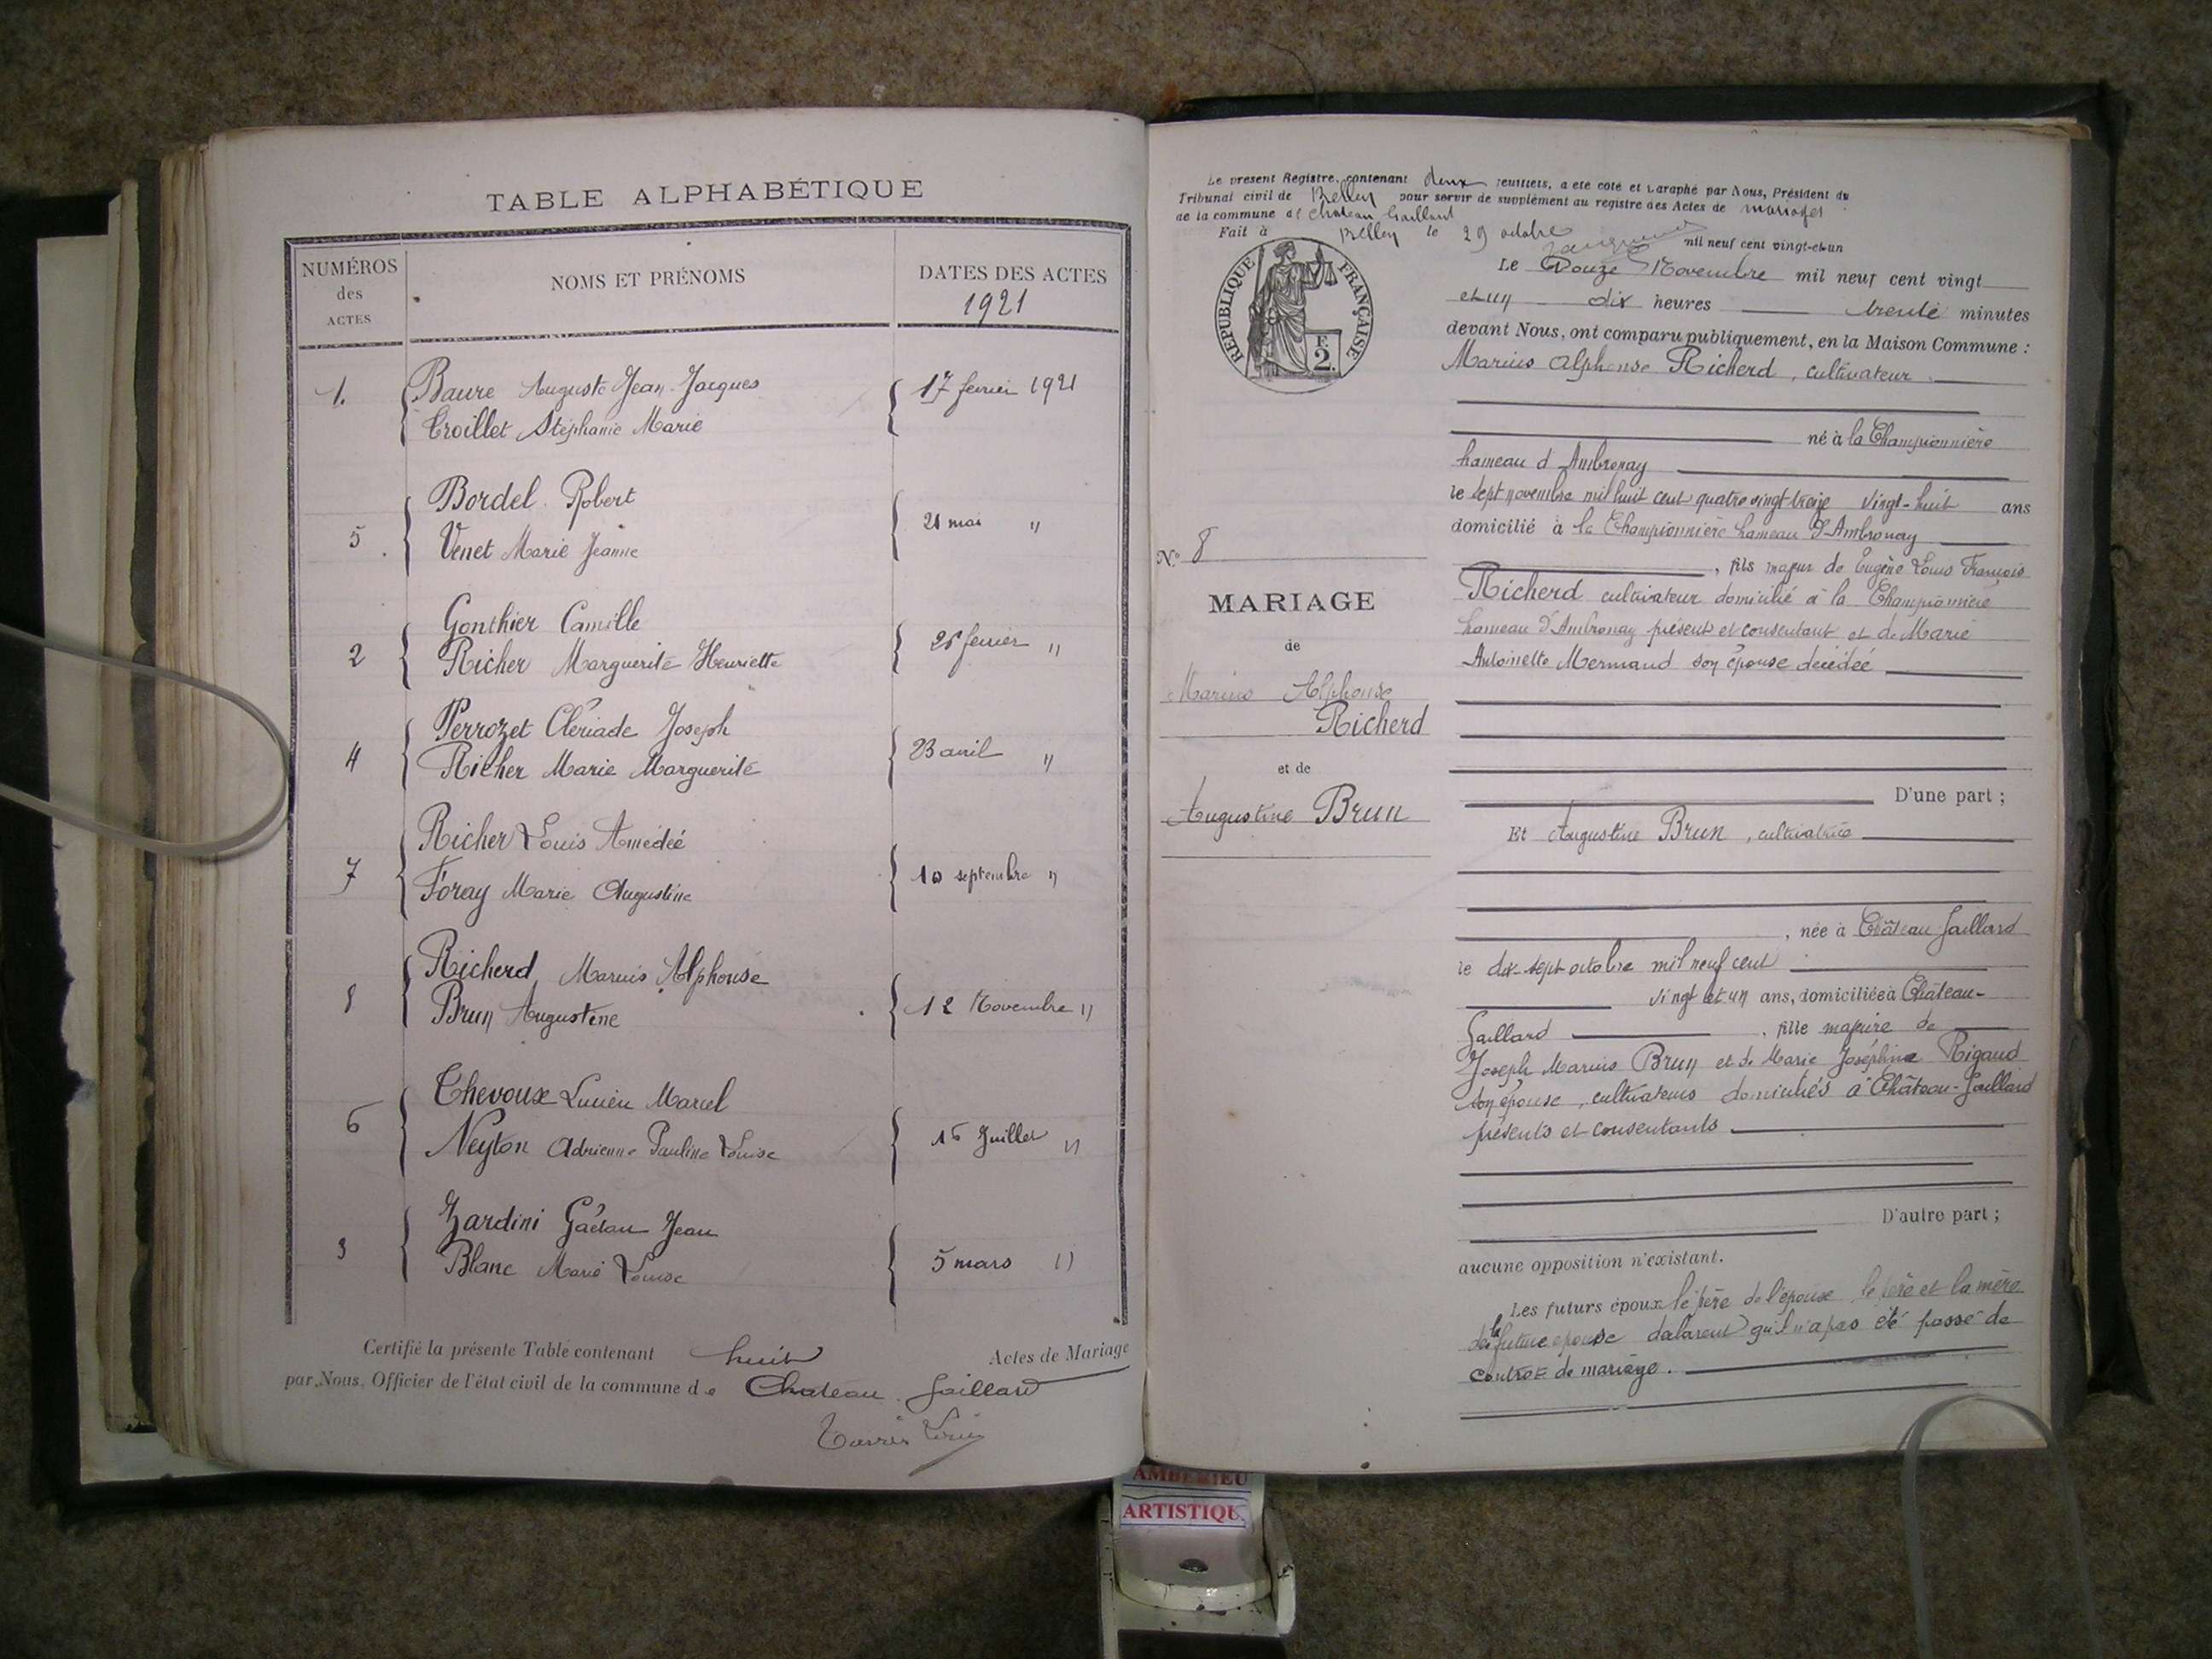 TABLE ALPHABÉTIQUE
NUMÉROS des ACTES
NOMS ET PRÉNOMS
DATES DES ACTES
1921
1. Baure Auguste Jean-Jacques 17 février 1921
Troillet Stéphanie Marie
5 Bordel Robert 21 mai "
Venet Marie Jeanne
2 Gonthier Camille 26 février "
Richer Marguerite Henriette
4 Perrozet Clériade Joseph 23 avril "
Richer Marie Marguerite
7 Richer Louis Amédéé 10 septembre "
Foray Marie Augustine
8 Richerd Marius Alphonse 12 Novembre "
Brun Augustine
6 Thevoux Lucien Marcel 16 Juillet "
Neyton Adrienne Pauline Louise
3 Zardini Gaëtan Jean 5 mars "
Blanc Marie Louise
Certifié la présente Table contenant huit Actes de Mariage
par Nous, Officier de l'état civil de la commune de Chateau Gaillard
Le present Registre, contenant deux feuillets, a été coté et paraphé par Nous, Président du
Tribunal civil de Belley pour servir de supplément au registre des Actes de mariages
de la commune de Chateau Gaillard
Fait à Belley le 29 octobre
mil neuf cent vingt-et-un
RÉPUBLIQUE FRANÇAISE
F. 2.
Le Douze Novembre mil neuf cent vingt
et un dix heures trente minutes
devant Nous, ont comparu publiquement, en la Maison Commune :
Marius Alphonse Richerd, cultivateur
né à la Championnière
hameau d'Ambronay
le sept novembre mil huit cent quatre vingt treize vingt-huit ans
domicilié à la Championnière hameau d'Ambronay
, fils majeur de Eugène Louis François
Richerd cultivateur domicilié à la Championnière
hameau d'Ambronay présent et consentant et de Marie
Antoinette Mermand son épouse décédéé
D'une part ;
Et Augustine Brun, cultivatrice
, née à Château Gaillard
le dix-sept octobre mil neuf cent
vingt et un ans, domiciliée à Château-
Gaillard , fille majeure de
Joseph Marius Brun et de Marie Joséphine Rigaud
son épouse, cultivateurs domiciliés à Château-Gaillard
présents et consentants
D'autre part ;
aucune opposition n'existant.
Les futurs époux le père de l'épouse le père et la mère
de la future epouse déclarent qu'il n'a pas été passé de
contrat de mariage.
N° 8
MARIAGE
de
Marius Alphonse
Richerd
et de
Augustine Brun
AMBERIEU
ARTISTIQU